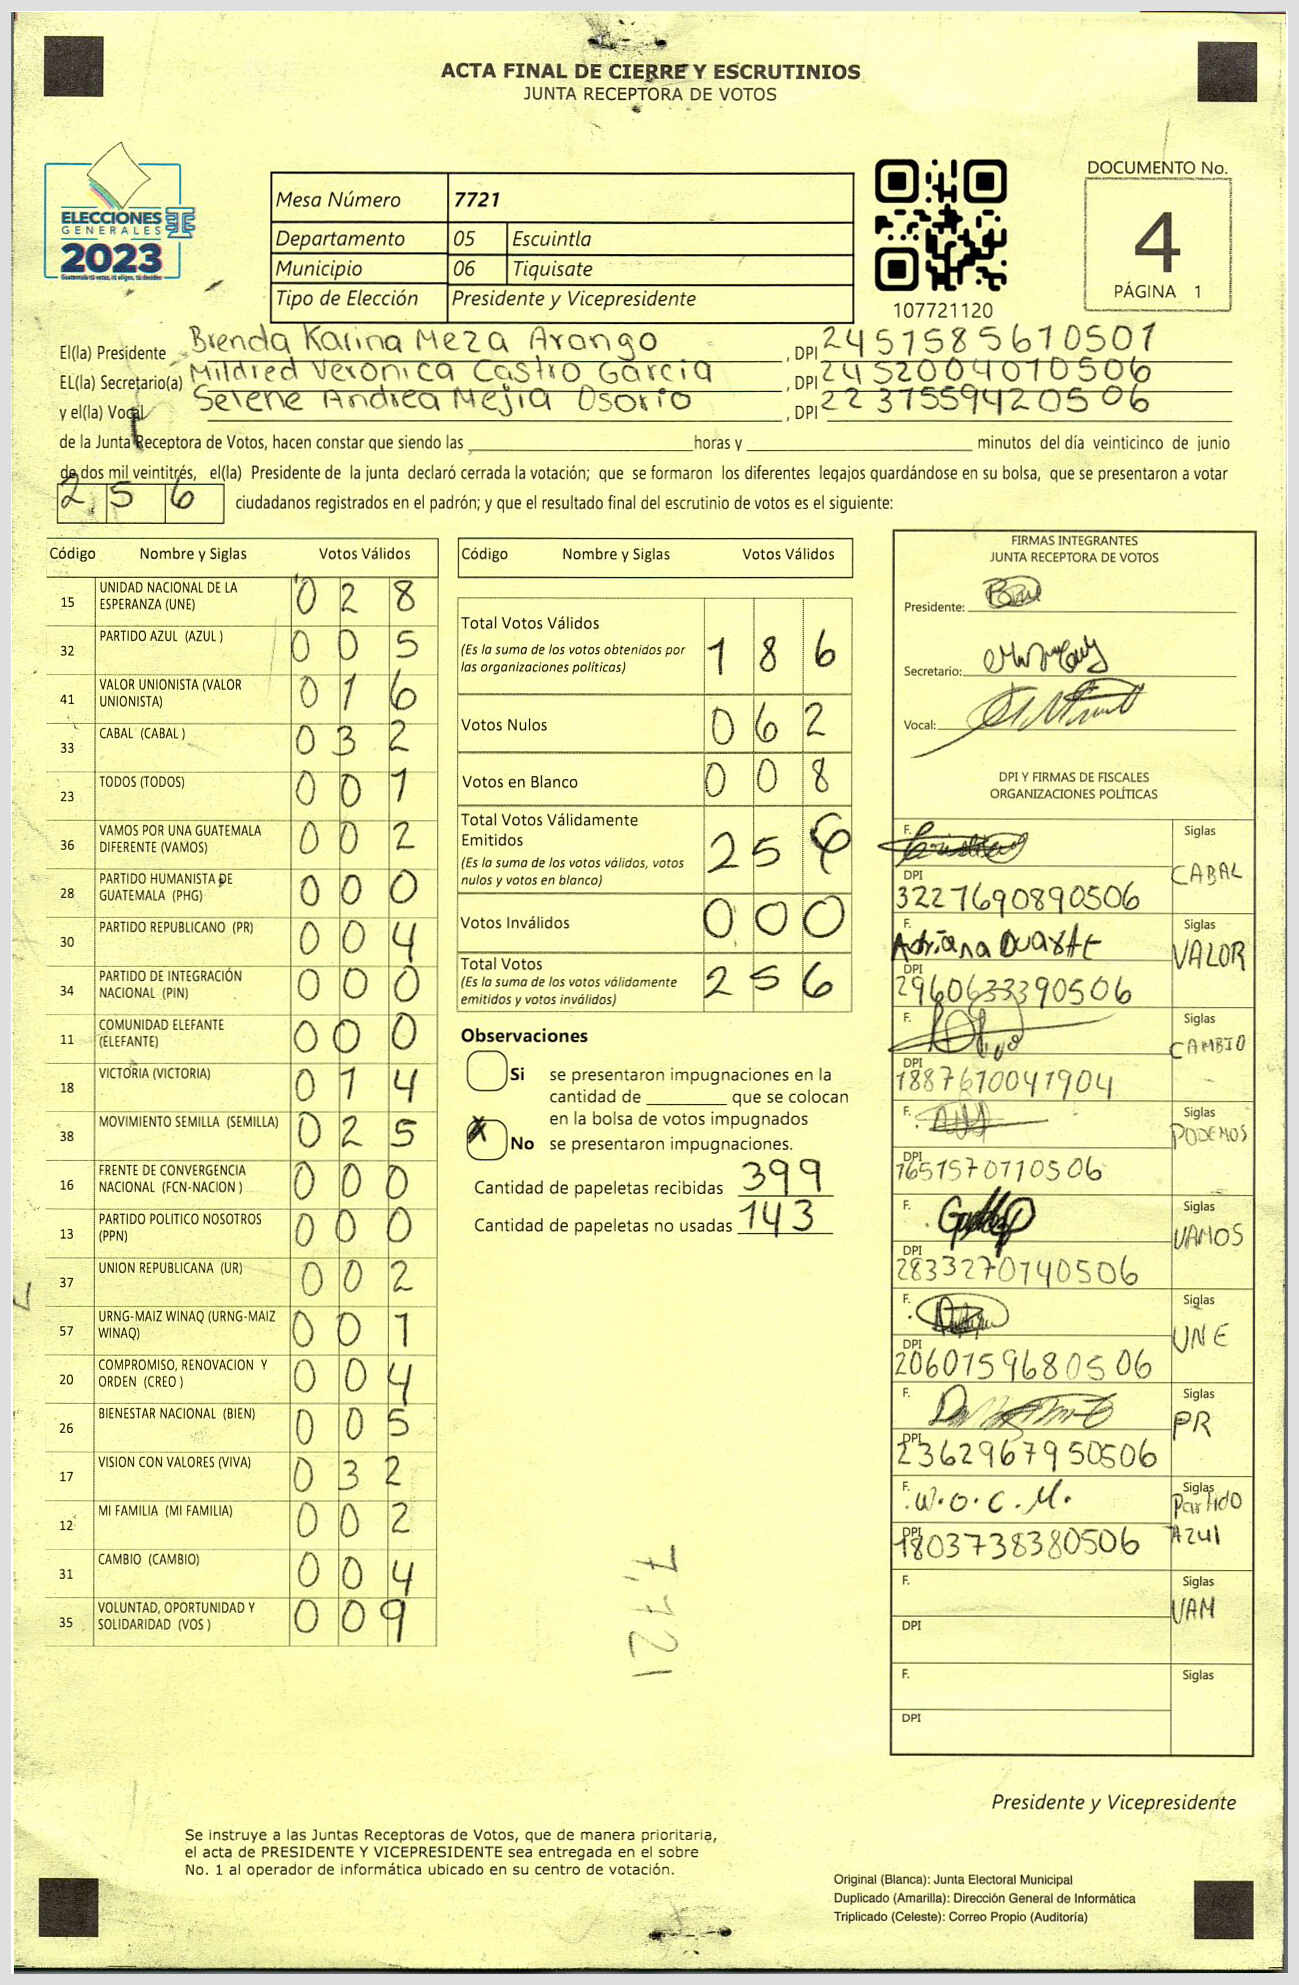 ACTA FINAL DE CIERRE Y ESCRUTINIOS
JUNTA RECEPTORA DE VOTOS
ELECCIONES
GENERALES
2023
Mesa Número 7721
Departamento 05 Escuintla
Municipio 06 Tiquisate
Tipo de Elección Presidente y Vicepresidente
107721120
DOCUMENTO No.
4
PÁGINA 1
El(la) Presidente Brenda Karina Meza Arango, DPI 2457585610501
EL(la) Secretario(a) Mildred Veronica Castro Garcia, DPI 2452004010506
y el(la) Vocal Selene Andrea Mejia Osorio, DPI 2237559420506
de la Junta Receptora de Votos, hacen constar que siendo las horas y minutos del día veinticinco de junio
de dos mil veintitrés, el(la) Presidente de la junta declaró cerrada la votación; que se formaron los diferentes legajos guardándose en su bolsa, que se presentaron a votar
256 ciudadanos registrados en el padrón; y que el resultado final del escrutinio de votos es el siguiente:
Código Nombre y Siglas Votos Válidos
15 UNIDAD NACIONAL DE LA ESPERANZA (UNE) 028
32 PARTIDO AZUL (AZUL ) 005
41 VALOR UNIONISTA (VALOR UNIONISTA) 016
33 CABAL (CABAL ) 032
23 TODOS (TODOS) 001
36 VAMOS POR UNA GUATEMALA DIFERENTE (VAMOS) 002
28 PARTIDO HUMANISTA DE GUATEMALA (PHG) 000
30 PARTIDO REPUBLICANO (PR) 004
34 PARTIDO DE INTEGRACIÓN NACIONAL (PIN) 000
11 COMUNIDAD ELEFANTE (ELEFANTE) 000
18 VICTORIA (VICTORIA) 014
38 MOVIMIENTO SEMILLA (SEMILLA) 025
16 FRENTE DE CONVERGENCIA NACIONAL (FCN-NACION ) 000
13 PARTIDO POLITICO NOSOTROS (PPN) 000
37 UNION REPUBLICANA (UR) 002
57 URNG-MAIZ WINAQ (URNG-MAIZ WINAQ) 001
20 COMPROMISO, RENOVACION Y ORDEN (CREO ) 004
26 BIENESTAR NACIONAL (BIEN) 005
17 VISION CON VALORES (VIVA) 032
12 MI FAMILIA (MI FAMILIA) 002
31 CAMBIO (CAMBIO) 004
35 VOLUNTAD, OPORTUNIDAD Y SOLIDARIDAD (VOS ) 009
Código Nombre y Siglas Votos Válidos
Total Votos Válidos 186
(Es la suma de los votos obtenidos por
las organizaciones políticas)
Votos Nulos 062
Votos en Blanco 008
Total Votos Válidamente
Emitidos 256
(Es la suma de los votos válidos, votos
nulos y votos en blanco)
Votos Inválidos 000
Total Votos 256
(Es la suma de los votos válidamente
emitidos y votos inválidos)
Observaciones
Si se presentaron impugnaciones en la
cantidad de que se colocan
en la bolsa de votos impugnados
X No se presentaron impugnaciones.
Cantidad de papeletas recibidas 399
Cantidad de papeletas no usadas 143
7,721
FIRMAS INTEGRANTES
JUNTA RECEPTORA DE VOTOS
Presidente:
Secretario:
Vocal:
DPI Y FIRMAS DE FISCALES
ORGANIZACIONES POLÍTICAS
F. Siglas
CABAL
DPI
3227690890506
F. Adriana Duarte Siglas
VALOR
DPI
2960633390506
F. Siglas
CAMBIO
DPI
1887610041904
F. Siglas
PODEMOS
DPI
1651570110506
F. Siglas
VAMOS
DPI
2833270140506
F. Siglas
UNE
DPI
2060159680506
F. Siglas
PR
DPI
2362967950506
F. W.O.C.M. Siglas
Partido
Azul
DPI
1803738380506
F. Siglas
VAM
DPI
F. Siglas
DPI
Presidente y Vicepresidente
Se instruye a las Juntas Receptoras de Votos, que de manera prioritaria,
el acta de PRESIDENTE Y VICEPRESIDENTE sea entregada en el sobre
No. 1 al operador de informática ubicado en su centro de votación.
Original (Blanca): Junta Electoral Municipal
Duplicado (Amarilla): Dirección General de Informática
Triplicado (Celeste): Correo Propio (Auditoría)